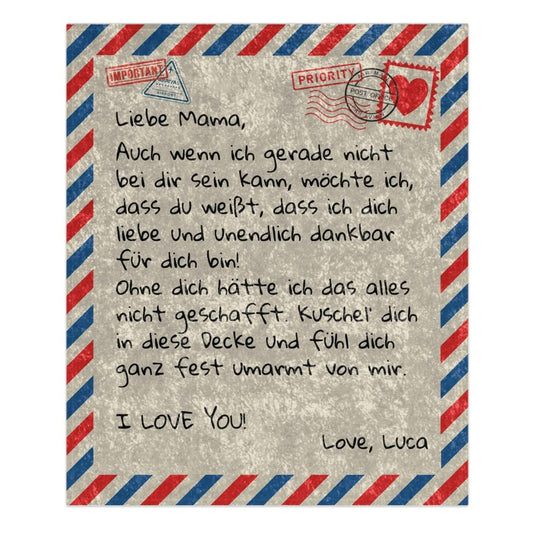 IMPORTANT
PRIORITY
POST OFFICE
Liebe Mama,
Auch wenn ich gerade nicht
bei dir sein kann, möchte ich,
dass du weißt, dass ich dich
liebe und unendlich dankbar
für dich bin!
Ohne dich hätte ich das alles
nicht geschafft. Kuschel' dich
in diese Decke und fühl dich
ganz fest umarmt von mir.
I LOVE YOU!
Love, Luca